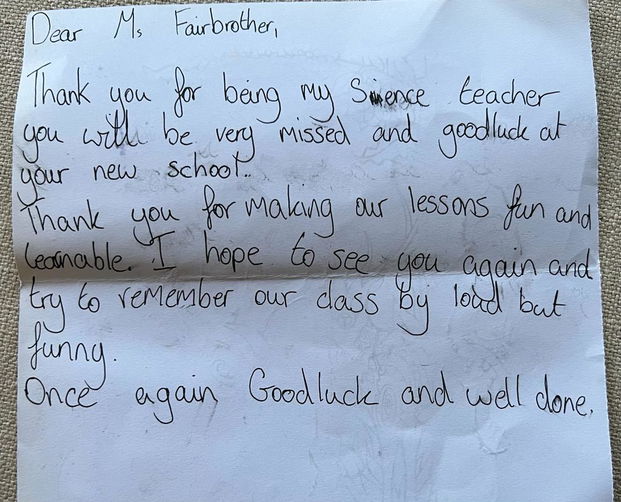 Dear Ms Fairbrother,
Thank you for being my Sience teacher
you will be very missed and goodluck at
your new school..
Thank you for making our lessons fun and
learnable. I hope to see you again and
try to remember our class by load but
funny.
Once again Goodluck and well done.